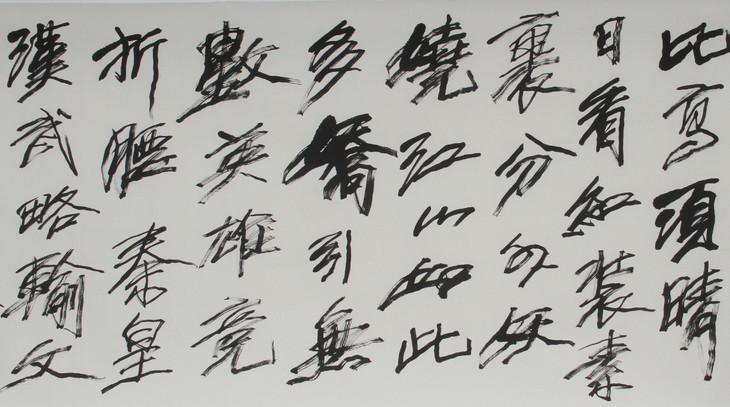 比高須晴
日看紅裝素
裹分外妖
嬈江山如此
多嬌引無
數英雄竞
折腰秦皇
漢武略輸文